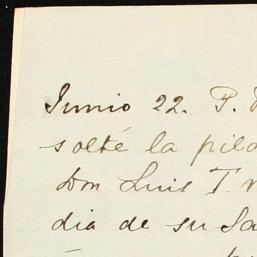 Junio 22. P.
solté la
Don Luis T.
dia de su